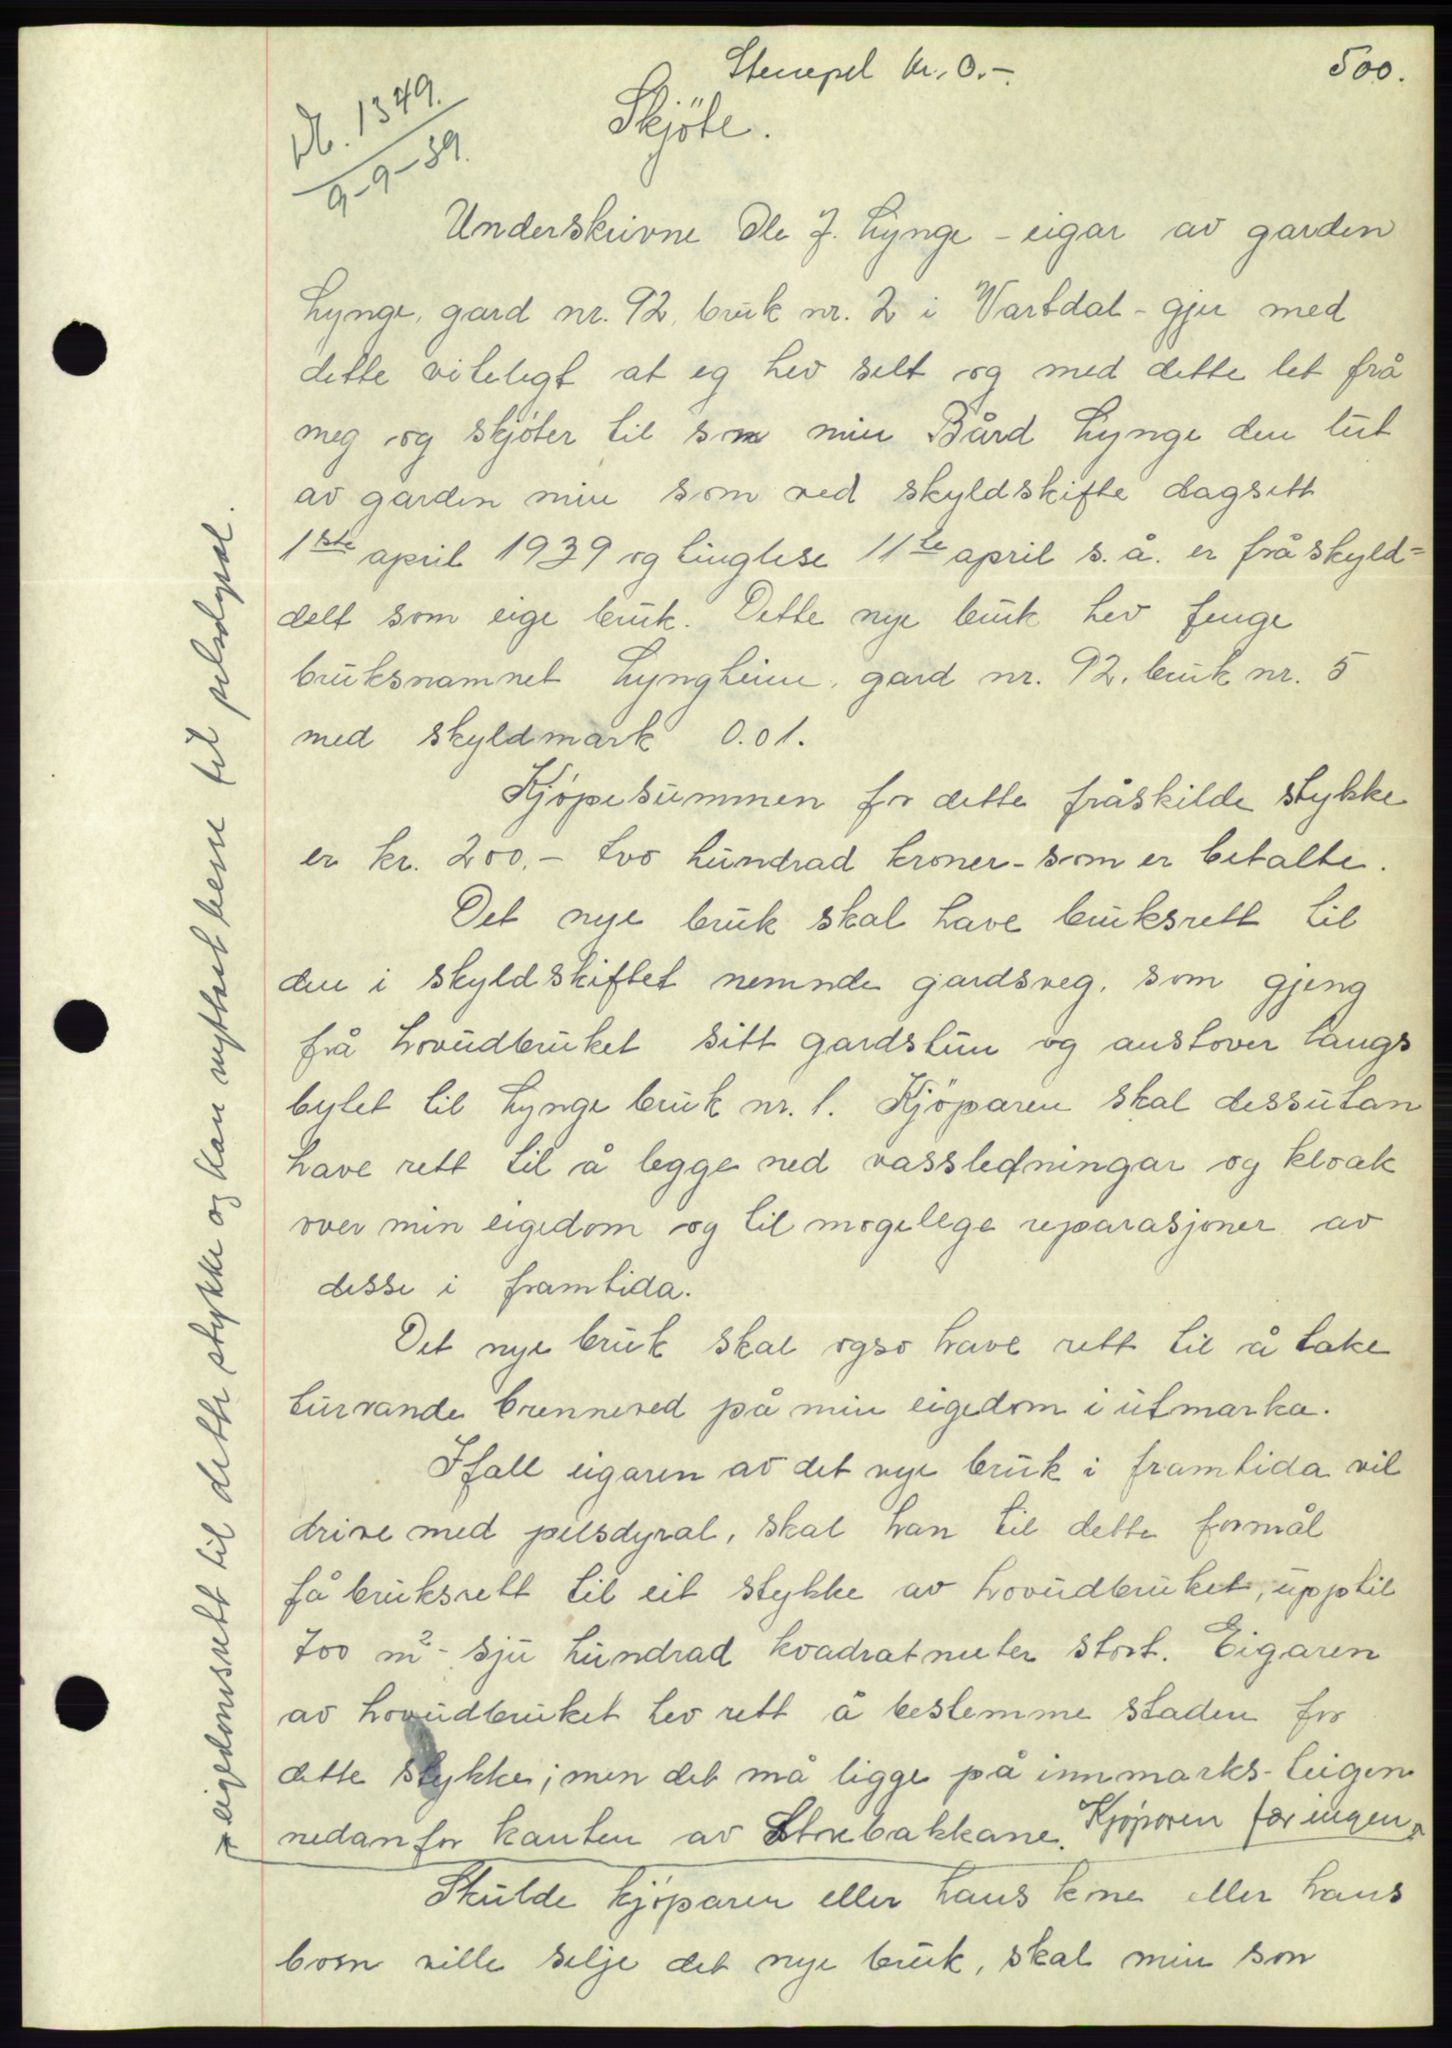 Stempel kr. 0.-.
500.
Nr. 1349.
9-9-39.
Skjöte.
Underskrivne Ole J. Lynge - eigar av garden
Lynge, gard nr. 92, bruk nr. 2 i Vartdal - gjer med
dette viteligt at eg hev selt og med dette let frå
meg og skjöter til son min Bård Lynge den lut
av garden min som ved skyldskifte dagsett
1ste april 1939 og tinglese 11te april s. å. er fråskyld=
delt som eige bruk. Dette nye bruk hev fenge
bruksnamnet Lyngheim, gard nr. 92, bruk nr. 5
med skyldmark 0.01.
Kjöpesummen for dette fråskilde stykke
er kr. 200.- tvo hundrad kroner - som er betalte.
Det nye bruk skal have bruksrett til
den i skyldskiftet nemnde gardsveg, som gjeng
frå hovudbruket sitt gardstun og austover langs
bytet til Lynge bruk nr. 1. Kjöparen skal dessutan
have rett til å legge ned vassledningar og kloak
over min eigedom og til mogelege reparasjoner av
desse i framtida.
Det nye bruk skal ogso have rett til å take
turvande brenneved på min eigedom i utmarka.
Ifall eigaren av det nye bruk i framtida vil
drive med pelsdyral, skal han til dette formål
få bruksrett til eit stykke av hovudbruket, upptil
700 m² - sju hundrad kvadratmeter stort. Eigaren
av hovudbruket hev rett å bestemme staden for
dette stykke; men det må ligge på innmarks-teigen
nedanfor kanten av Storebakkane. Kjöparen får ingen
eigedomsrett til dette stykke og kan nyttast berre til pelsdyral.
Skulde kjöparen eller hans kone eller hans
born ville selje det nye bruk, skal min son